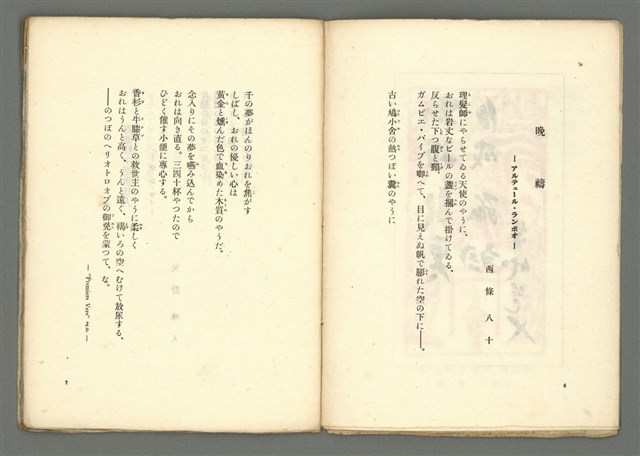 晩禱
―アルテュール・ランボオ―
西條八十
理髮師にやらせてゐる天使のやうに、
おれは岩丈なビールの盞を摑んで掛けてゐる、
反らせた下つ腹と頸、
ガムビエ・パイプを啣へて、目に見えぬ帆で膨れた空の下に――。
古い鳩小舍の熱つぽい糞のやうに
6
千の夢がほんのりおれを焦がす
しばし、おれの優しい心は
黄金と燻んだ色で血染めた木質のやうだ。
念入りにその夢を嚥み込んでから
おれは向き直る。三四十杯やつたので
ひどく催す小便に專心する。
香杉と牛膝草との救世主のやうに柔しく
おれはうんと高く、うんと遠く、褐いろの空へむけて放尿する、
――のつぽのヘリオトロオプの御免を蒙つて、な。
―"Premiers Vers" より―
7